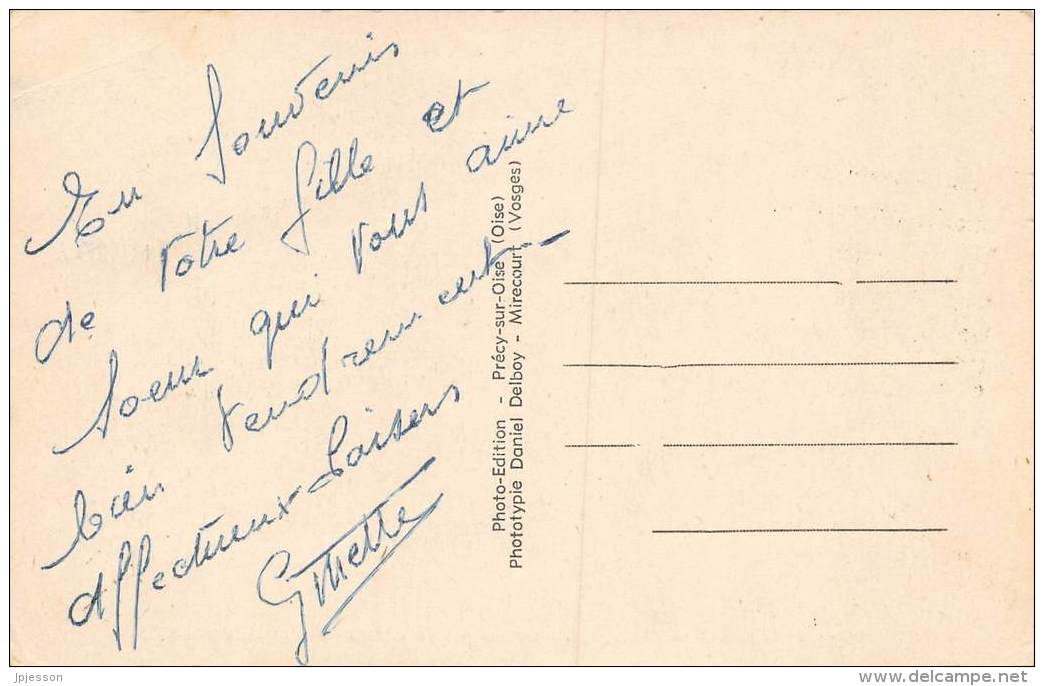 En Souvenir
de votre fille et
Soeur qui vous aime
bien tendrement
Affectueux Baisers
Ginette
Photo-Edition - Précy-sur-Oise (Oise)
Phototypie Daniel Delboy - Mirecourt (Vosges)
jpjesson
www.delcampe.net